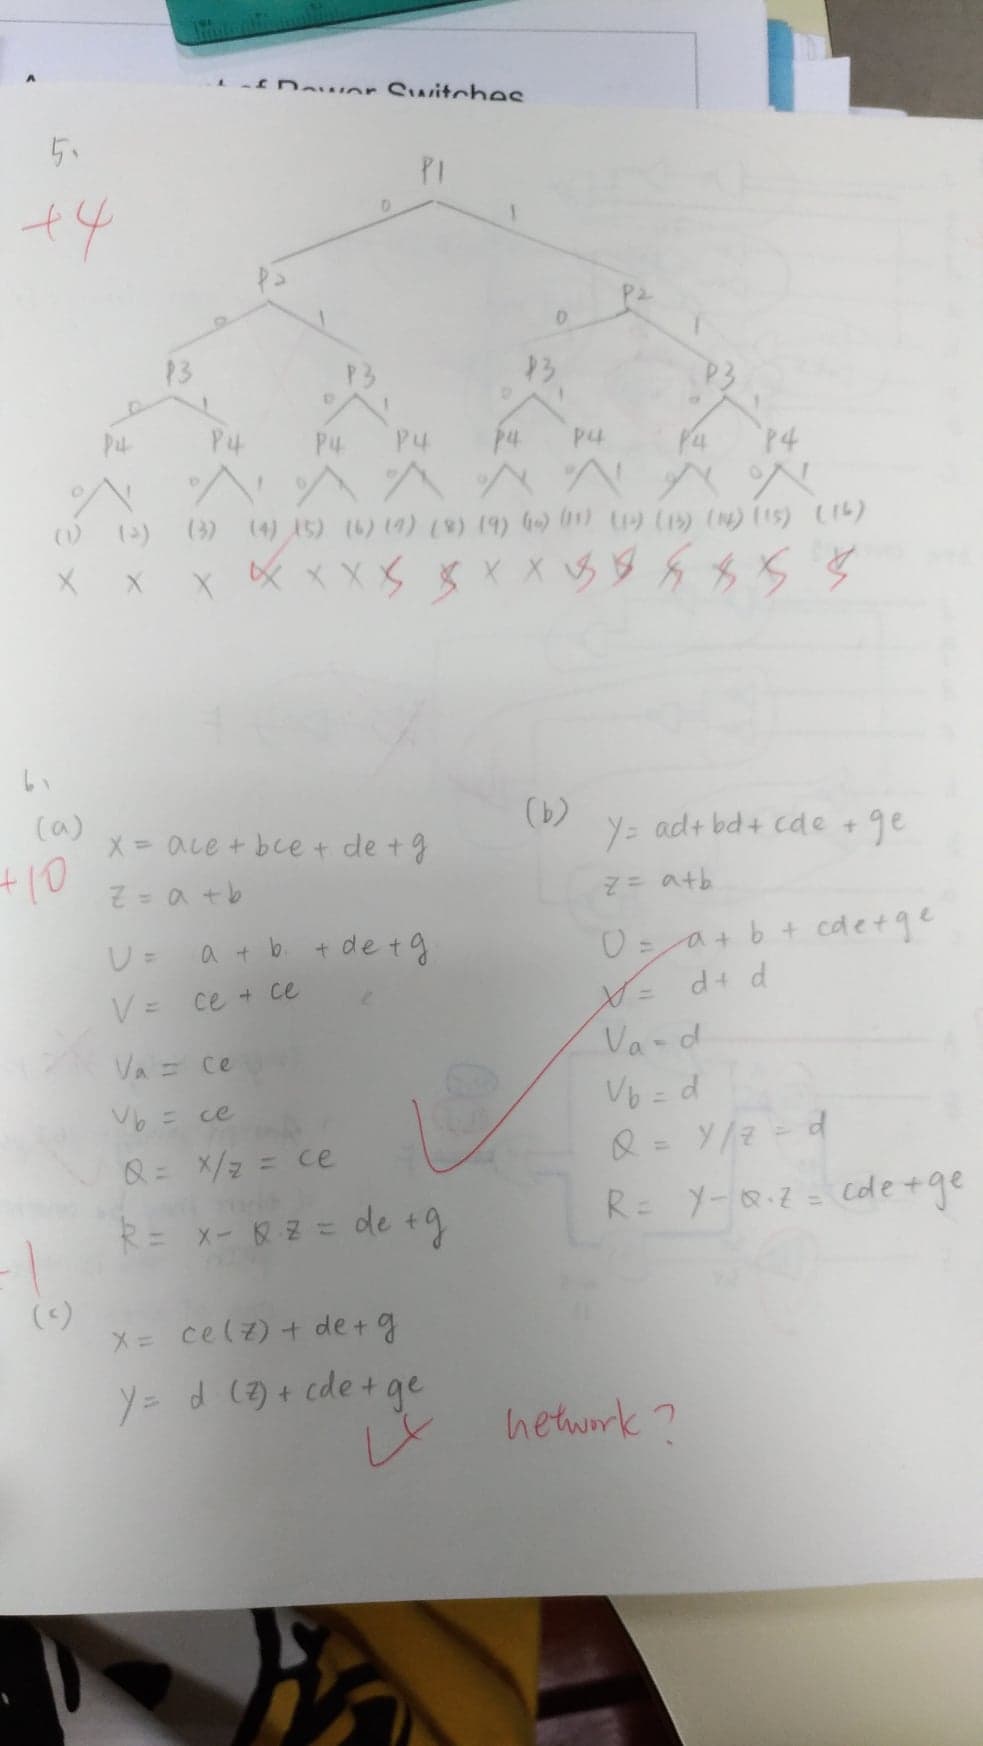 of Power Switches
5、
+4
P1
0 1
P2 P2
0 1 0 1
P3 P3 P3 P3
0 1 0 1 0 1 0 1
P4 P4 P4 P4 P4 P4 P4 P4
0 1 0 1 0 1 0 1 0 1 0 1 0 1 0 1
(1) (2) (3) (4) (5) (6) (7) (8) (9) (10) (11) (12) (13) (14) (15) (16)
X X X X X X X X
6、
(a)
+10
X = ace + bce + de + g
Z = a + b
U = a + b + de + g
V = ce + ce
Va = ce
Vb = ce
Q = X/Z = ce
R = X - Q·Z = de + g
(b)
Y = ad + bd + cde + ge
Z = a+b
U = a + b + cde + ge
V = d + d
Va = d
Vb = d
Q = Y/Z = d
R = Y - Q·Z = cde + ge
-1
(c)
X = ce(Z) + de + g
Y = d (Z) + cde + ge
network?